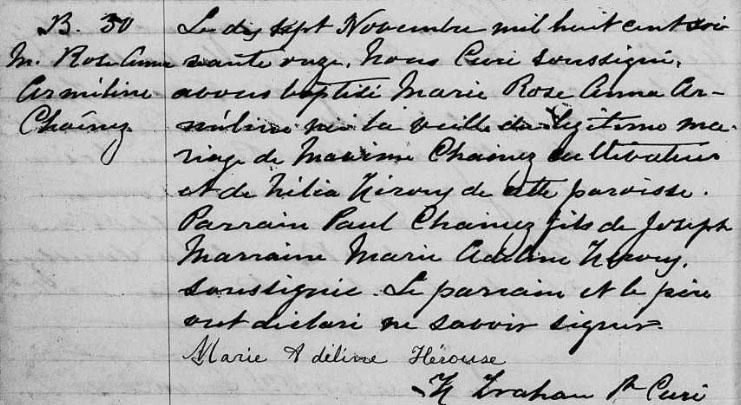 B. 30
M. Rose Anna
Arméline
Chaînez
Le dix sept Novembre mil huit cent soi
xante onze, Nous Curé soussigné,
avons baptisé Marie Rose Anna Ar-
méline née la veille du légitime ma-
riage de Maxime Chainez cultivateur
et de Nélia Hérou de cette paroisse.
Parrain Paul Chainez fils de Joseph
Marraine Marie Adeline
soussignée. Le parrain et le père
ont déclaré ne savoir signer.
Marie Adéline Hérouse
N Trahan Ptre Curé